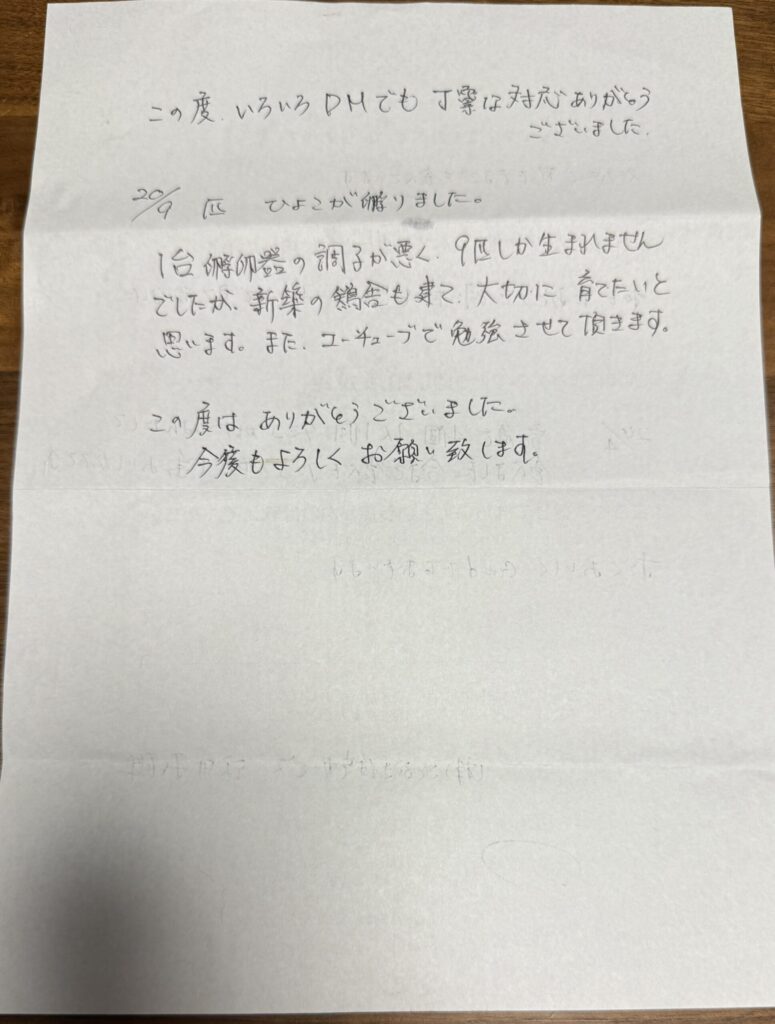 この度、いろいろDMでも丁寧な対応ありがとう
ございました。
20/9 匹 ひよこが孵りました。
1台孵卵器の調子が悪く、9匹しか生まれません
でしたが、新築の鶏舎も建て、大切に育てたいと
思います。また、ユーチューブで勉強させて頂きます。
この度はありがとうございました。
今度もよろしくお願い致します。